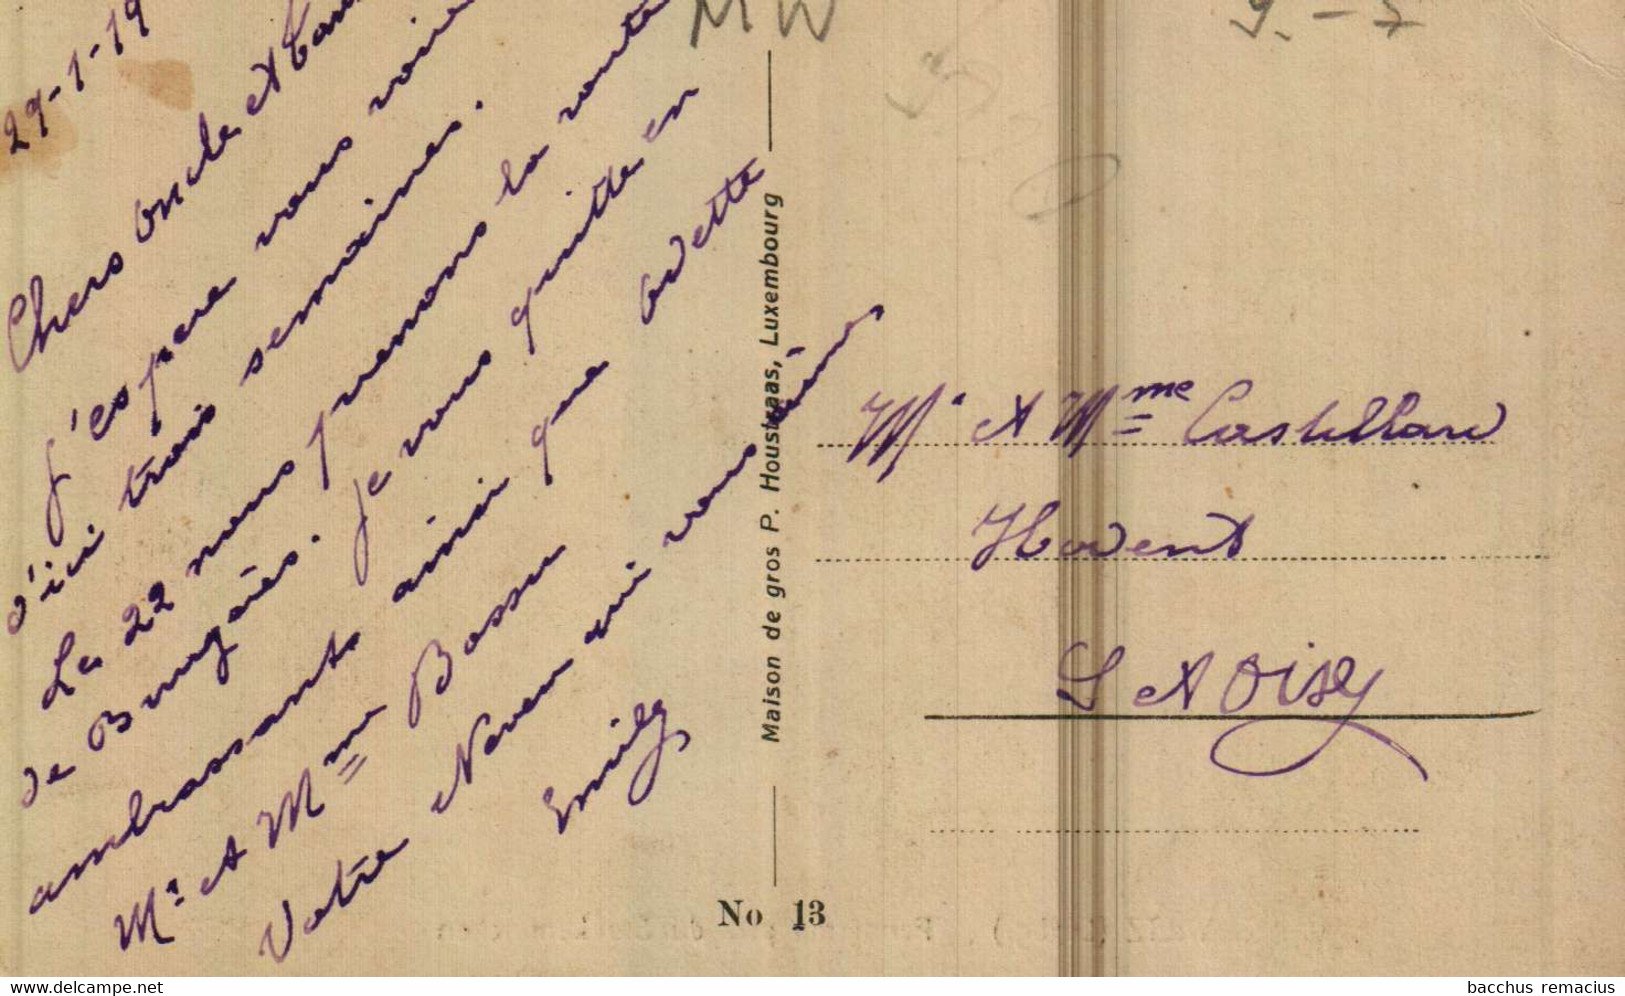 29-1-19
Chers oncle et
j'espere vous
d'ici trois semaines.
Le 22 nous prenons la route
de Je vous quitte en
ambrassants ainsi que Odette
Mr et Mme Bossu
Votre Neveu qui vous aime
Emile
MW
9. - 7
Maison de gros P. Houstraas, Luxembourg
No 13
Mr et Mme
S et Oise
delcampe.net
bacchus remacius